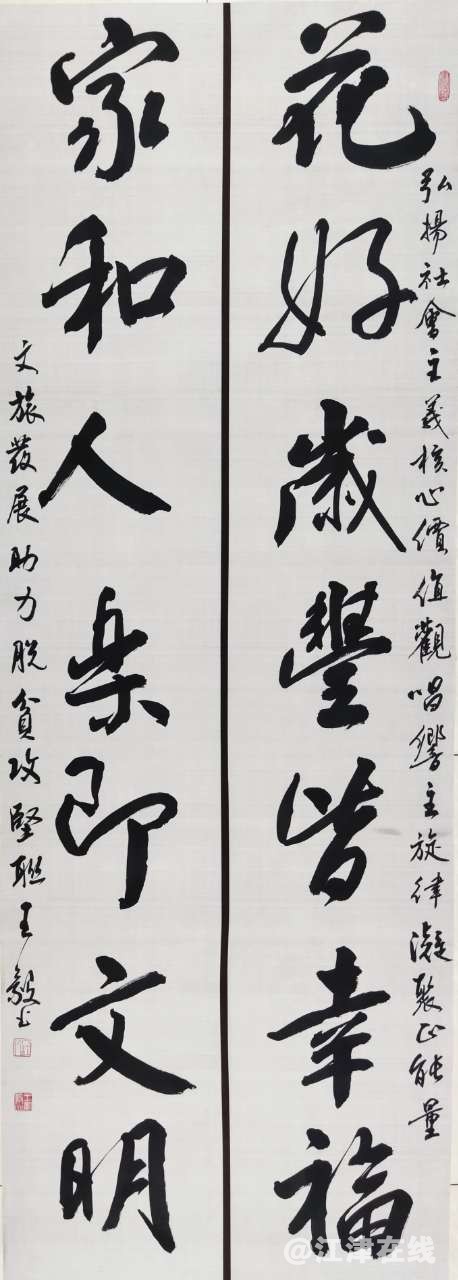 花好歲豐皆幸福
弘揚社會主義核心價值觀唱響主旋律凝聚正能量
家和人樂即文明
文旅發展助力脫貧攻堅聯王毅書
@江津在线